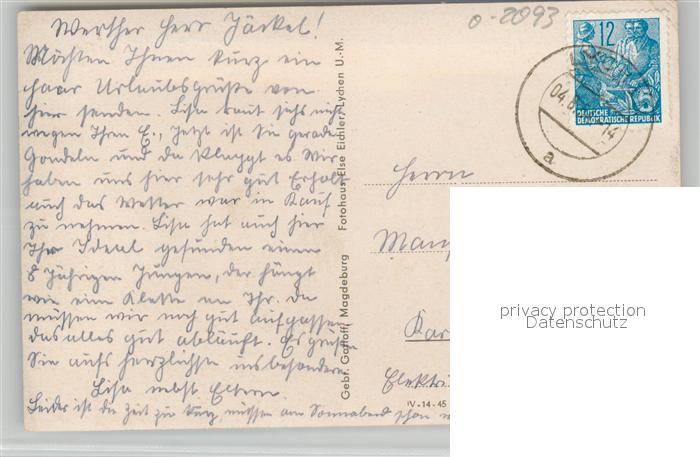 Werther Herr Jäckel!
Möchten Ihnen kurz ein
paar Urlaubsgrüße von
hier senden. Lisa traut sichs nicht
wegen Ihren E., Jetzt ist Sie gerade
Gondeln und da klappt es. Wir
haben uns hier sehr gut Erholt
auch das Wetter war in Kauf
zu nehmen. Lisa hat auch hier
Ihr Ideal gefunden einen
8 Jährigen Jungen, der hängt
wie eine Klette an Ihr. Da
müssen wir noch gut aufpassen
das alles gut abläuft. Es grüßen
Sie aufs herzlichste insbesondere
Lisa nebst Eltern.
Leider ist die Zeit zu kurz, müssen am Sonnabend schon
Gebr. Garloff, Magdeburg Fotohaus Else Eichler, Lychen U.-M.
o-2093
12
DEUTSCHE
DEMOKRATISCHE REPUBLIK
04.8.
14
a
Herrn
Kar
Elektri
IV-14-45
privacy protection
Datenschutz